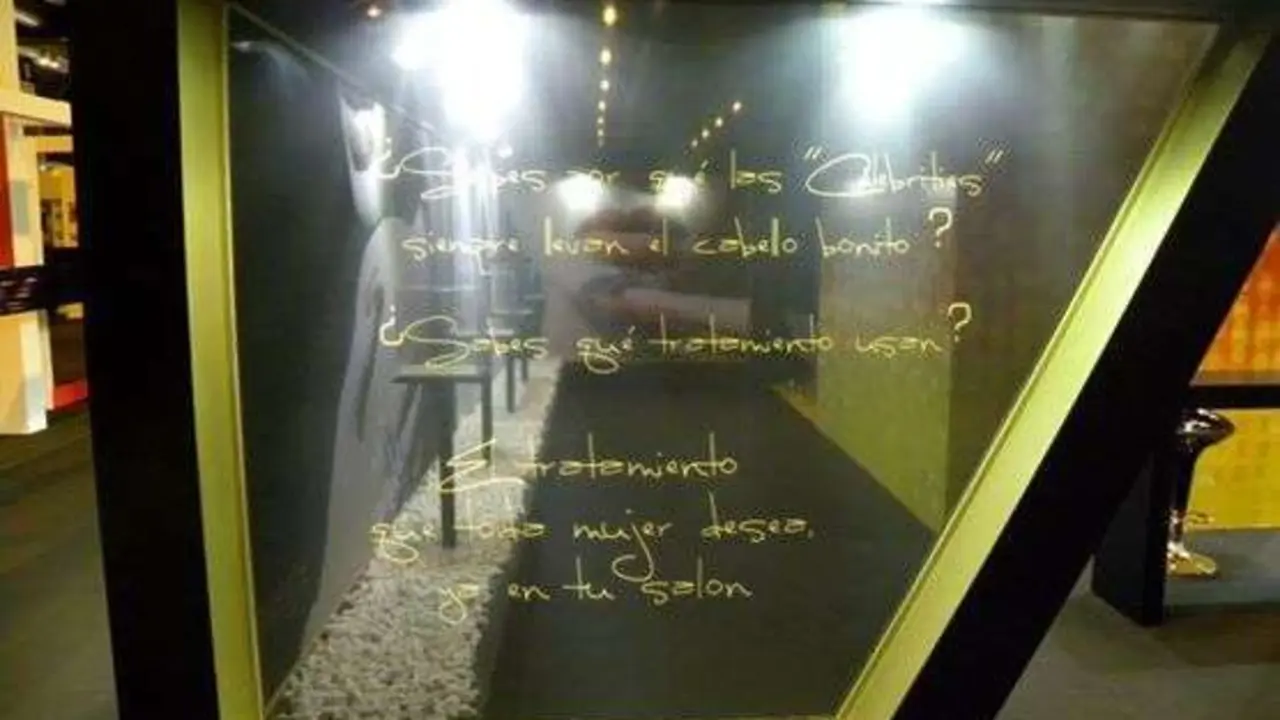 ¿Sabes por qué las "Celebrities"
siempre levan el cabelo bonito?
¿Sabes qué tratamiento usan?
El tratamiento
que toda mujer desea,
ya en tu salon